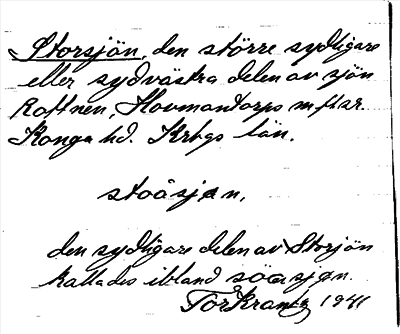 Storsjön, den större sydligare
eller sydvästra delen av sjön
Rottnen, Hovmantorps m fl sr.
Konga hd. Krbgs län.
stoåsjøn,
den sydligare delen av Storjön
kallades ibland söasjøn.
Tor Krantz 1941